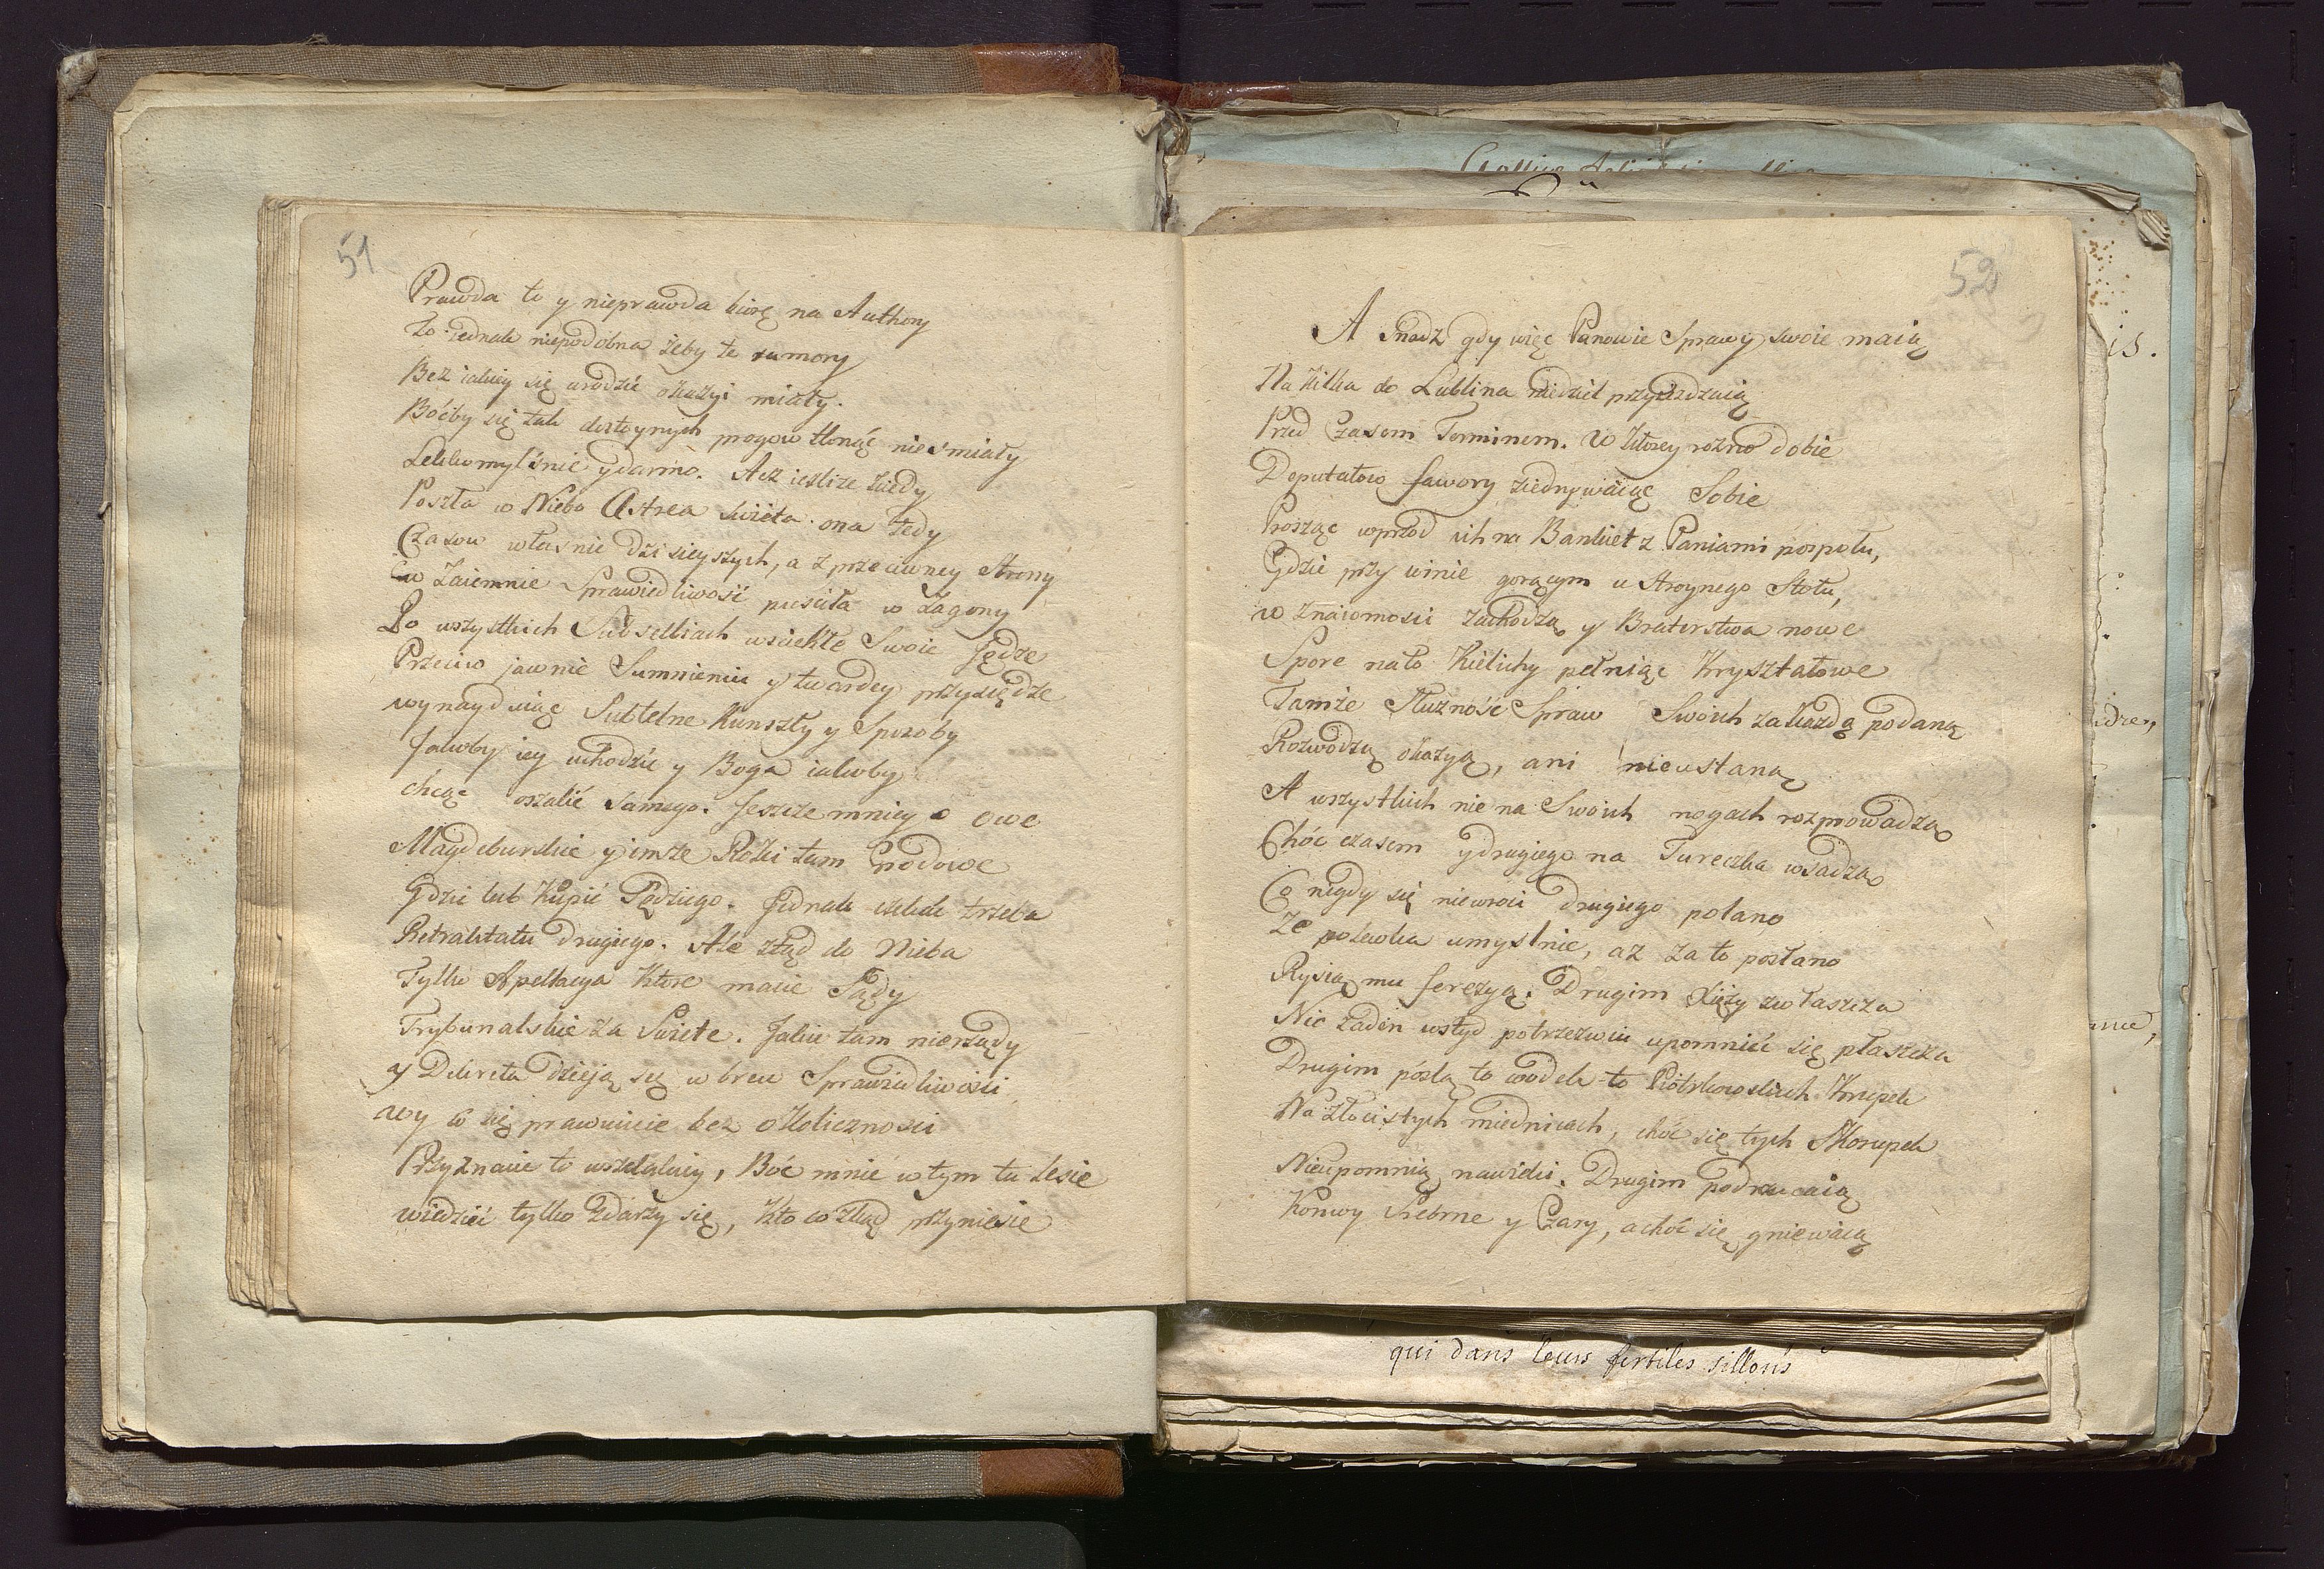 51
Prawda to y nieprawda biorę na Authory
To iednak niepodobna żeby te rumory
Bez iakiey się urodzić okazyi miały.
Boćby się tak dostoynych progow tknąć nie smiały
Lekkomyslnie y darmo. Acz ieslize kiedy
Poszła w Niebo Astrea swieta ona tedy
Czasow własnie dzisieyszych, a z przeciwney strony
Zaiemnie Sprawiedliwość puściła w Zagony
Po wszystkich Subselliach wsciekłe Swoie Jędze
Przeciw jawnie Sumnieniu y twardey przysiędze
wynayduiąc Subtelne Kunszty y Sposoby
Jakoby iey uchodzić y Boga iakoby
chcąc oszalić Samego. Jeszcze mniey o owe
Magdeburskie y insze Rożki tam Grodowe
Gdzie lub Kupić Sędziego. Jednak czekać trzeba
Retraktatu drugiego. Ale ztąd do Nieba
Tylko Apellacya Ktore macie Sądy
Trybunalskie za Swiete. Jakie tam nierządy
y Dekreta dzieją się wbrew Sprawiedliwości
wy co się prawuiecie bez okoliczności
Przyznacie to wszelakiey, Boć mnie w tym tu lesie
wiedzieć tylko zdarzy się, Kto co ztąd przyniesie
52
A snadz gdy więc Panowie Sprawy swoie maią
Na Kilka do Lublina niedziel przyieżdzaią
Przed Czasem Terminem. W Ktorey rozno dobie
Deputatow fawory ziednywaiąc Sobie
Prosząc wprzod ich na Bankiet z Paniami pospołu,
Gdzie przy winie gorącym u stroynego Stołu,
w Znaiomosci zachodzą y Braterstwa nowe
Spore na to Kielichy pełniąc Kryształowe
Tamże Słuzność Spraw Swoich za każdą podaną
Rozwodzą okazyą, ani nieustaną
A wszystkich nie na Swoich nogach rozprowadzą
Choć czasem y drugiego na Tureczka wsadzą
Co nigdy się niewroci drugiego polano
Ze polewka umyslnie, aż za to posłano
Rysią mu ferezyą. Drugim zwłaszcza
Nie żaden wstyd potrzezwiu upomnieć się płaszcza
Drugim poslą to wodek to Piotrkowskich Krupek
Na złocistych miednicach, choć się tych skorupek
Nieupomnią nawieki. Drugim podrzucaią
Konwy Srebrne y Czary, a choć się gniewaią
qui dans leurs fertiles sillons
is.